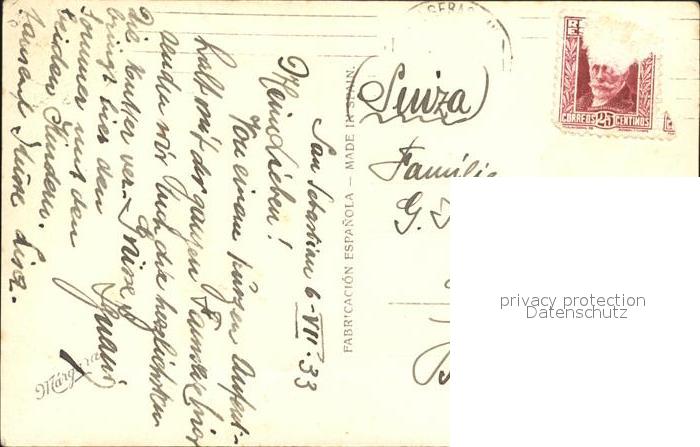 San Sebastian 6-VII-33
Meine Lieben!
Von einem kurzen Aufent-
halt mit der ganzen Familie hier
senden wir Euch die herzlichsten
Grüsse,
Die Mutter ver-
bringt hier den
Sommer mit den
beiden Kindern.
Tausend Küsse
Márgara
FABRICACIÓN ESPAÑOLA — MADE IN SPAIN.
(Suiza)
Familie
G.
CORREOS 25 CENTIMOS
privacy protection
Datenschutz